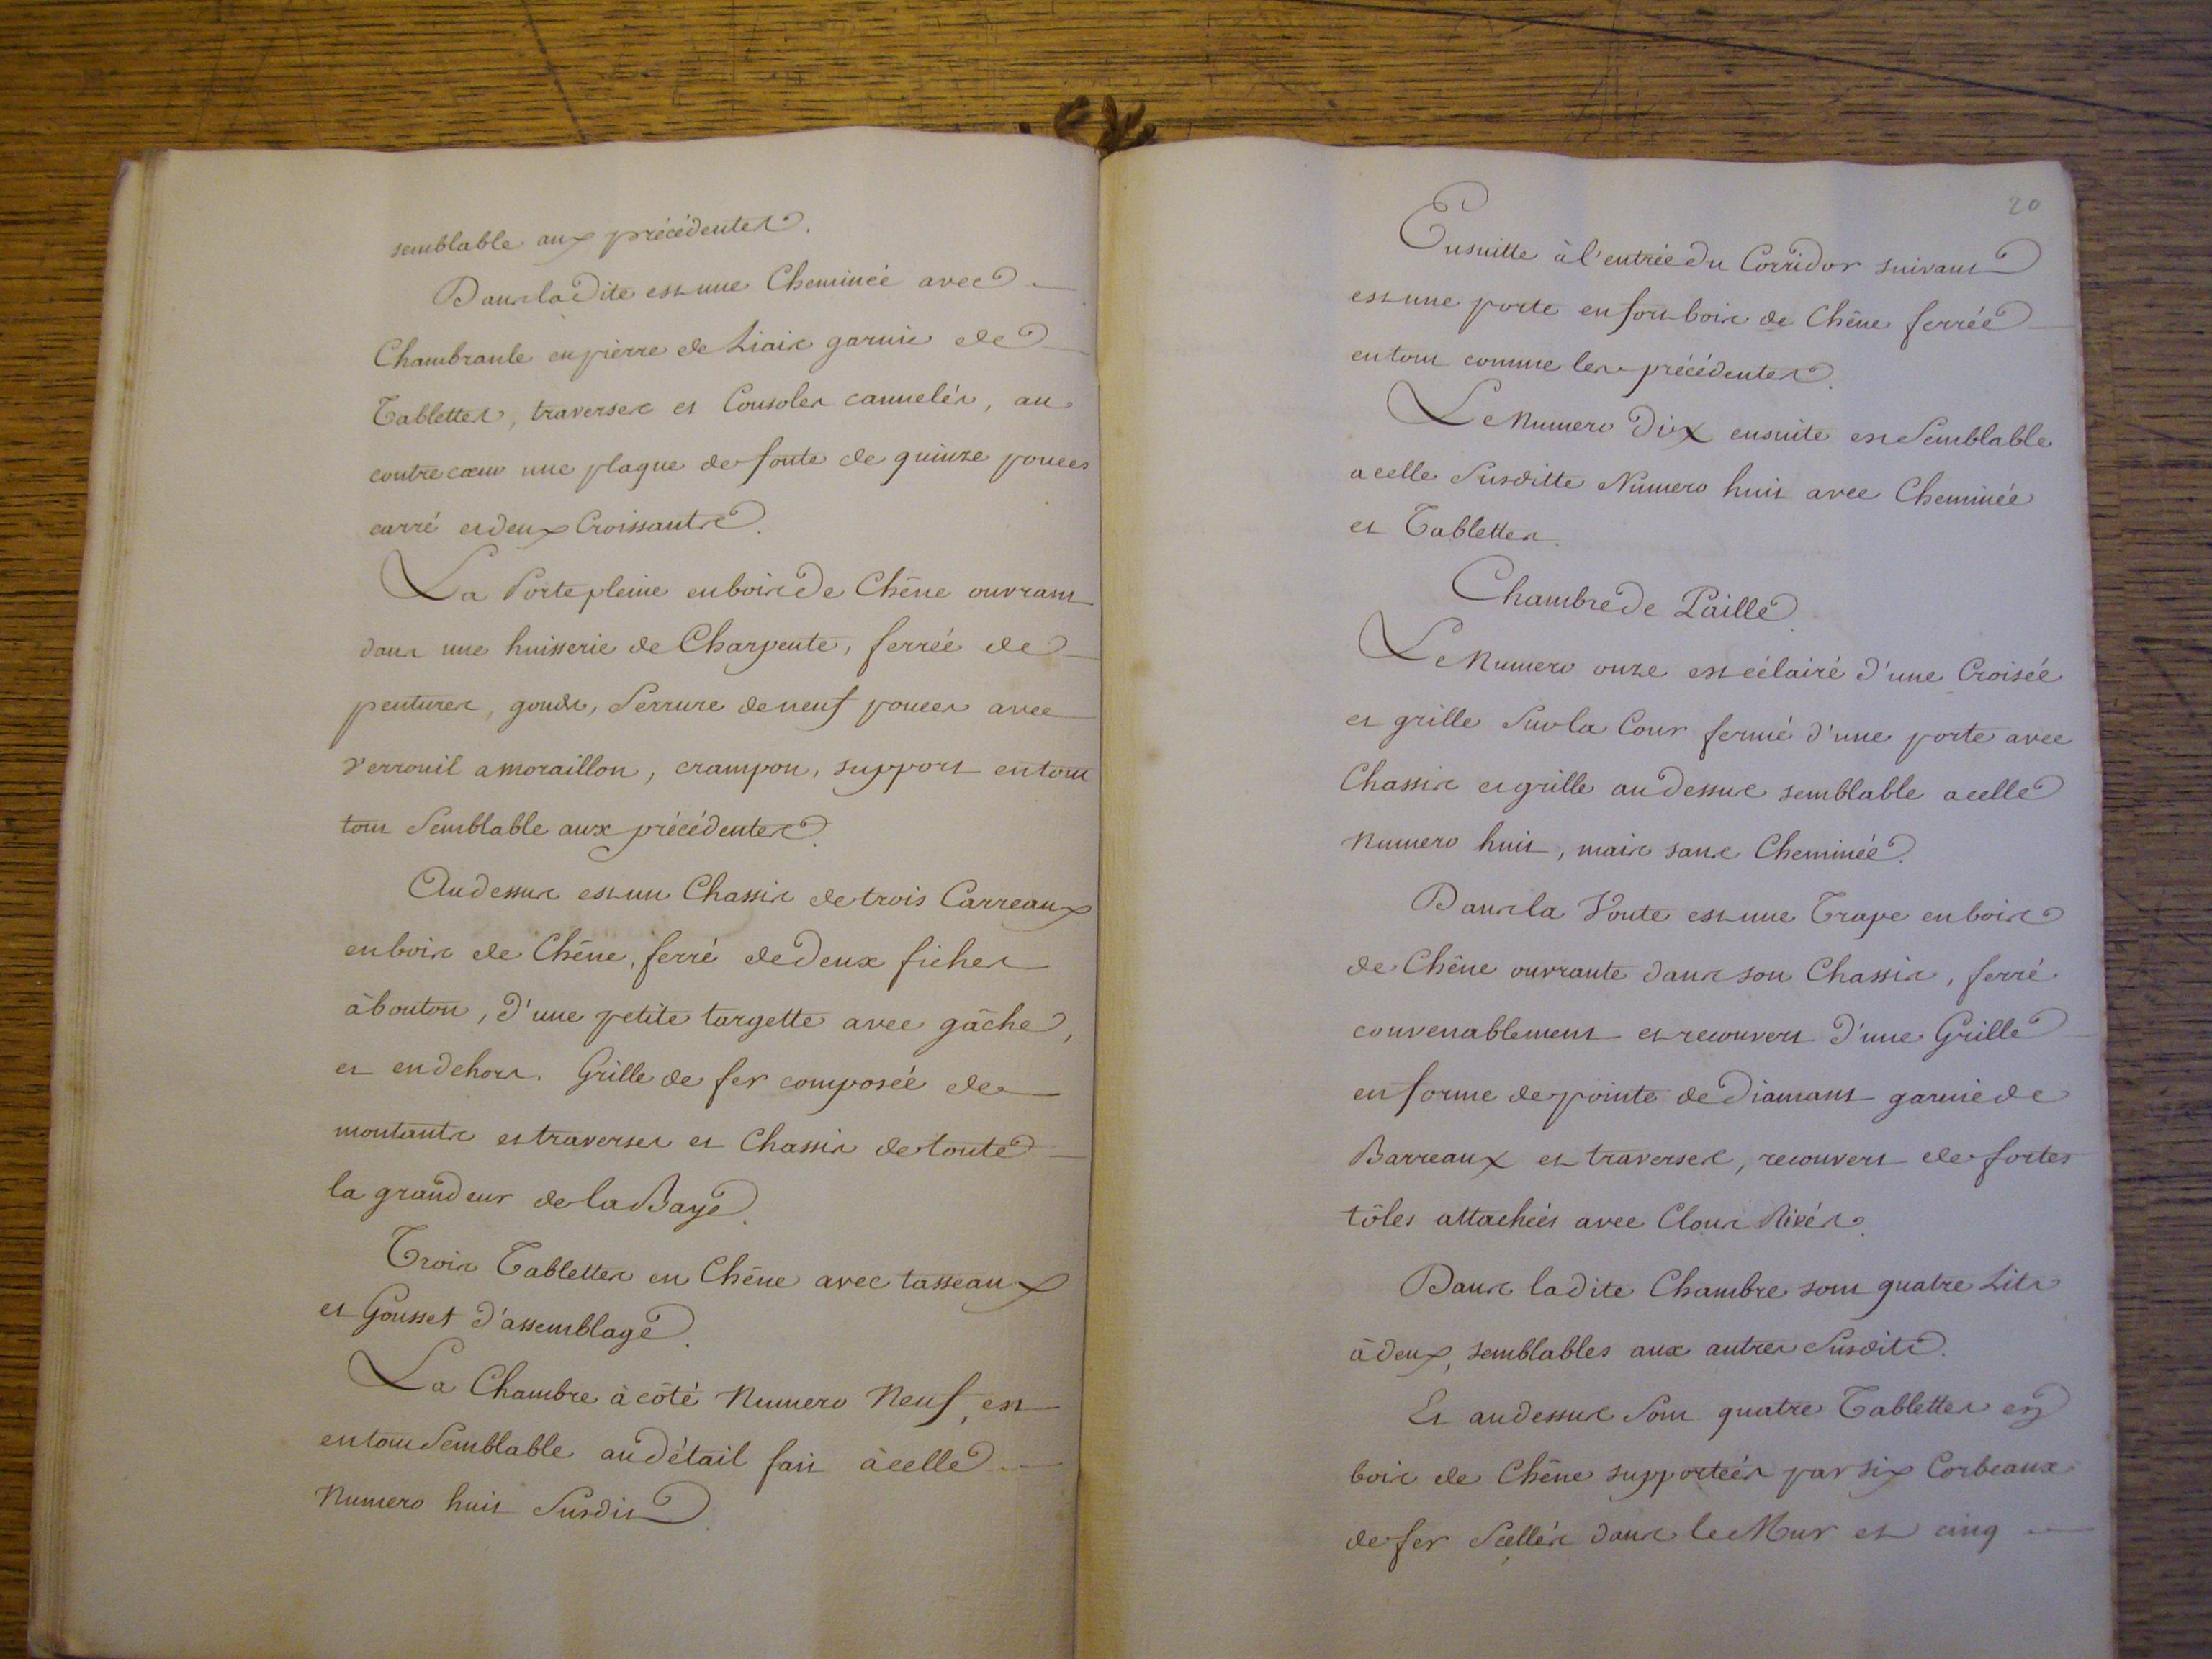 semblable aux précédentes.
Dans la dite est une Cheminée avec
Chambranle en pierre de Liais garnie de
Tablettes, traverses et Consoles cannelés, au
contre cœur une plaque de fonte de quinze pouces
carré et deux Croissants.
La Porte pleine en bois de Chêne ouvrant
dans une huisserie de Charpente, ferrée de
pentures, gonds, Serrure de neuf pouces avec
verrouil a moraillon, crampon, support en tout
tout Semblable aux précédentes.
Au dessus est un Chassis de trois Carreaux
en bois de Chêne, ferré de deux fiches
à bouton, d'une petite targette avec gâche,
et en dehors. Grille de fer composée de
montants et traverses et Chassis de toute
la grandeur de la Baye.
Trois Tablettes en Chêne avec tasseaux
et Gousset d'assemblage.
La Chambre à côté Numero Neuf, est
en tout Semblable au détail fait à celle
Numero huit Susdit.
20
Ensuitte à l'entrée du Corridor suivant
est une porte en fort bois de Chêne ferrée
en tout comme les précédentes.
Le Numero Dix ensuite est Semblable
a celle Susditte Numero huit avec Cheminée
et Tablettes.
Chambre de Paille.
Le Numero onze est éclairé d'une Croisée
et grille Sur la Cour fermé d'une porte avec
Chassis et grille au dessus semblable a celle
Numero huit, mais sans Cheminée.
Dans la Voute est une Trape en bois
de Chêne ouvrante dans son Chassis, ferré
convenablement et recouvert d'une Grille
en forme de pointe de Diamant garnie de
Barreaux et traverses, recouvert de fortes
tôles attachées avec Clous Rivés.
Dans la dite Chambre sont quatre Lits
à deux, semblables aux autres Susdits.
Et au dessus Sont quatre Tablettes en
bois de Chêne supportées par six Corbeaux
de fer Scellés dans le Mur et cinq